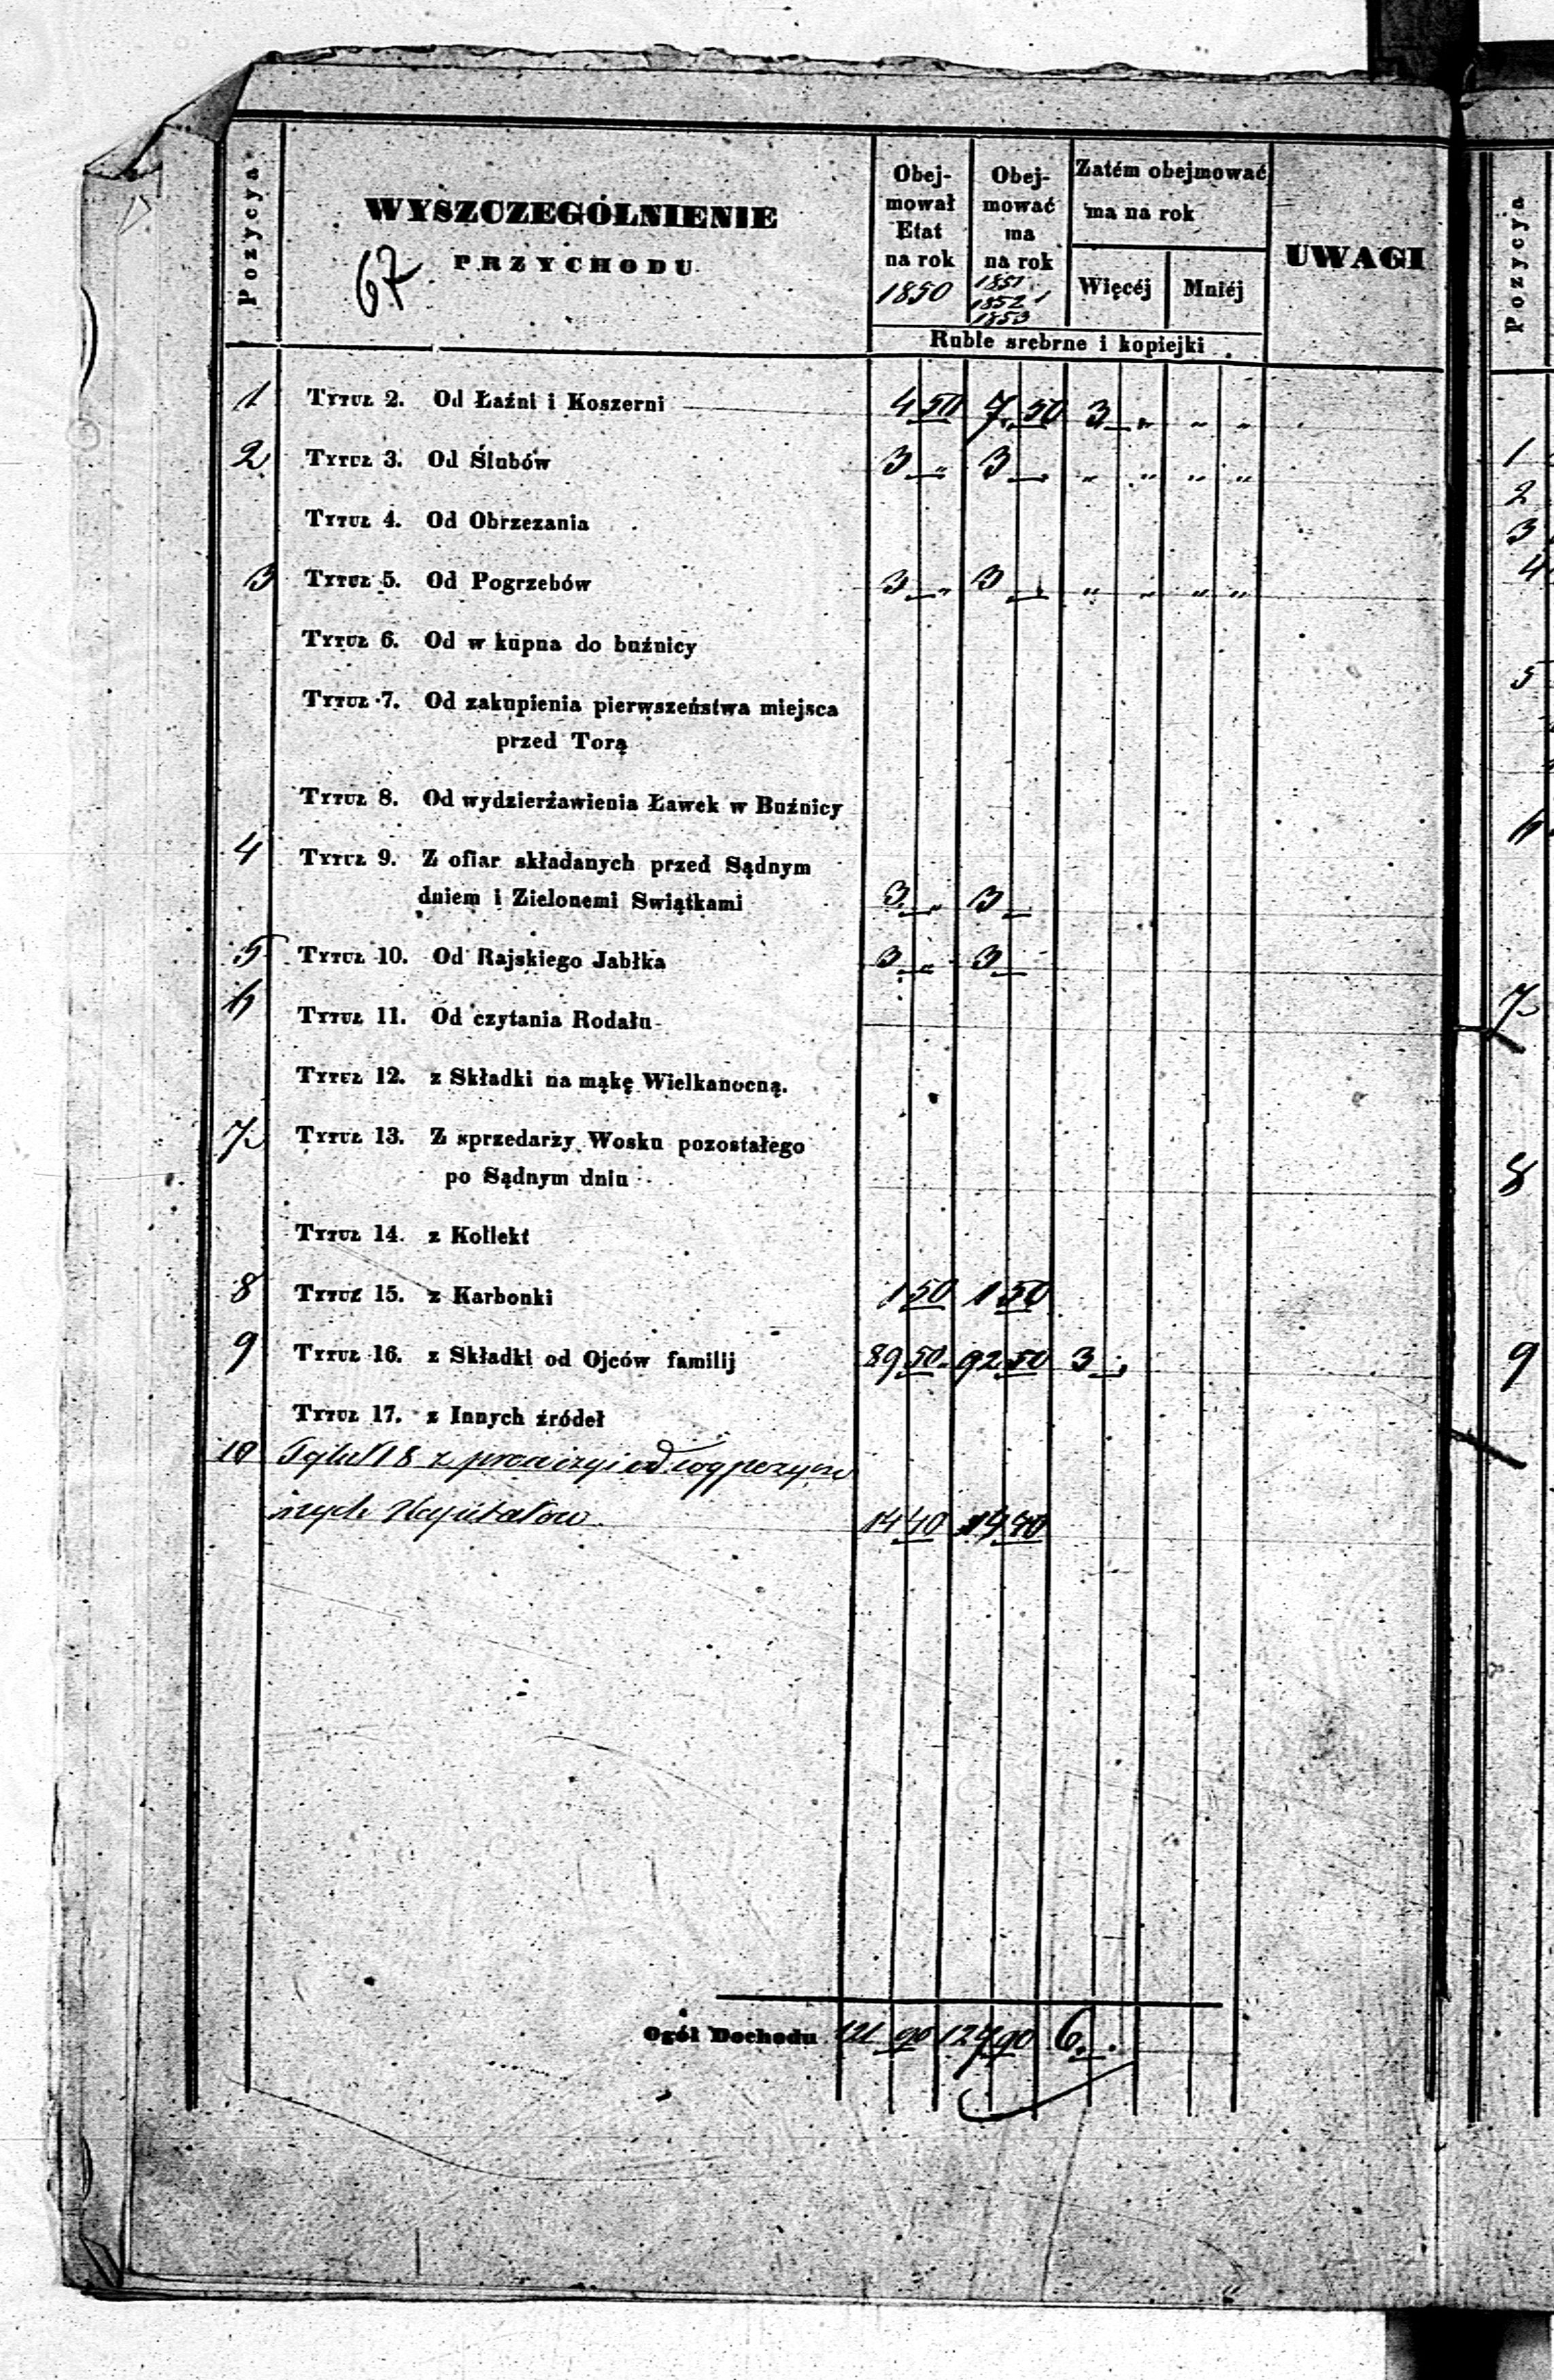 Pozycya
WYSZCZEGÓLNIENIE
PRZYCHODU
67
Obejmował Etat na rok 1850
Obejmować ma na rok 1851 1852 1853
Zatém obejmować ma na rok
Więcéj Mniéj
UWAGI
Ruble srebrne i kopiejki
1 Tytuł 2. Od Łaźni i Koszerni 4 50 7 50 3 „ „ „
2 Tytuł 3. Od Ślubów 3 „ 3 „ „ „ „
Tytuł 4. Od Obrzezania
3 Tytuł 5. Od Pogrzebów 3 „ 3 „ „ „ „
Tytuł 6. Od w kupna do buźnicy
Tytuł 7. Od zakupienia pierwszeństwa miejsca
przed Torą
Tytuł 8. Od wydzierżawienia Ławek w Buźnicy
4 Tytuł 9. Z ofiar składanych przed Sądnym
dniem i Zielonemi Swiątkami 3 „ 3
5 Tytuł 10. Od Rajskiego Jabłka 3 „ 3
6 Tytuł 11. Od czytania Rodału
Tytuł 12. z Składki na mąkę Wielkanocną.
7 Tytuł 13. Z sprzedarży Wosku pozostałego
po Sądnym dniu
Tytuł 14. z Kollekt
8 Tytuł 15. z Karbonki 1 50 1 50
9 Tytuł 16. z Składki od Ojców familij 89 50 92 50 3
Tytuł 17. z Innych źródeł
10 Tytuł 18 z
nych Kapitałow 14 40 14 40
Ogół Dochodu 121 90 127 90 6
Pozycja
1
2
3
4
5
6
7
8
9